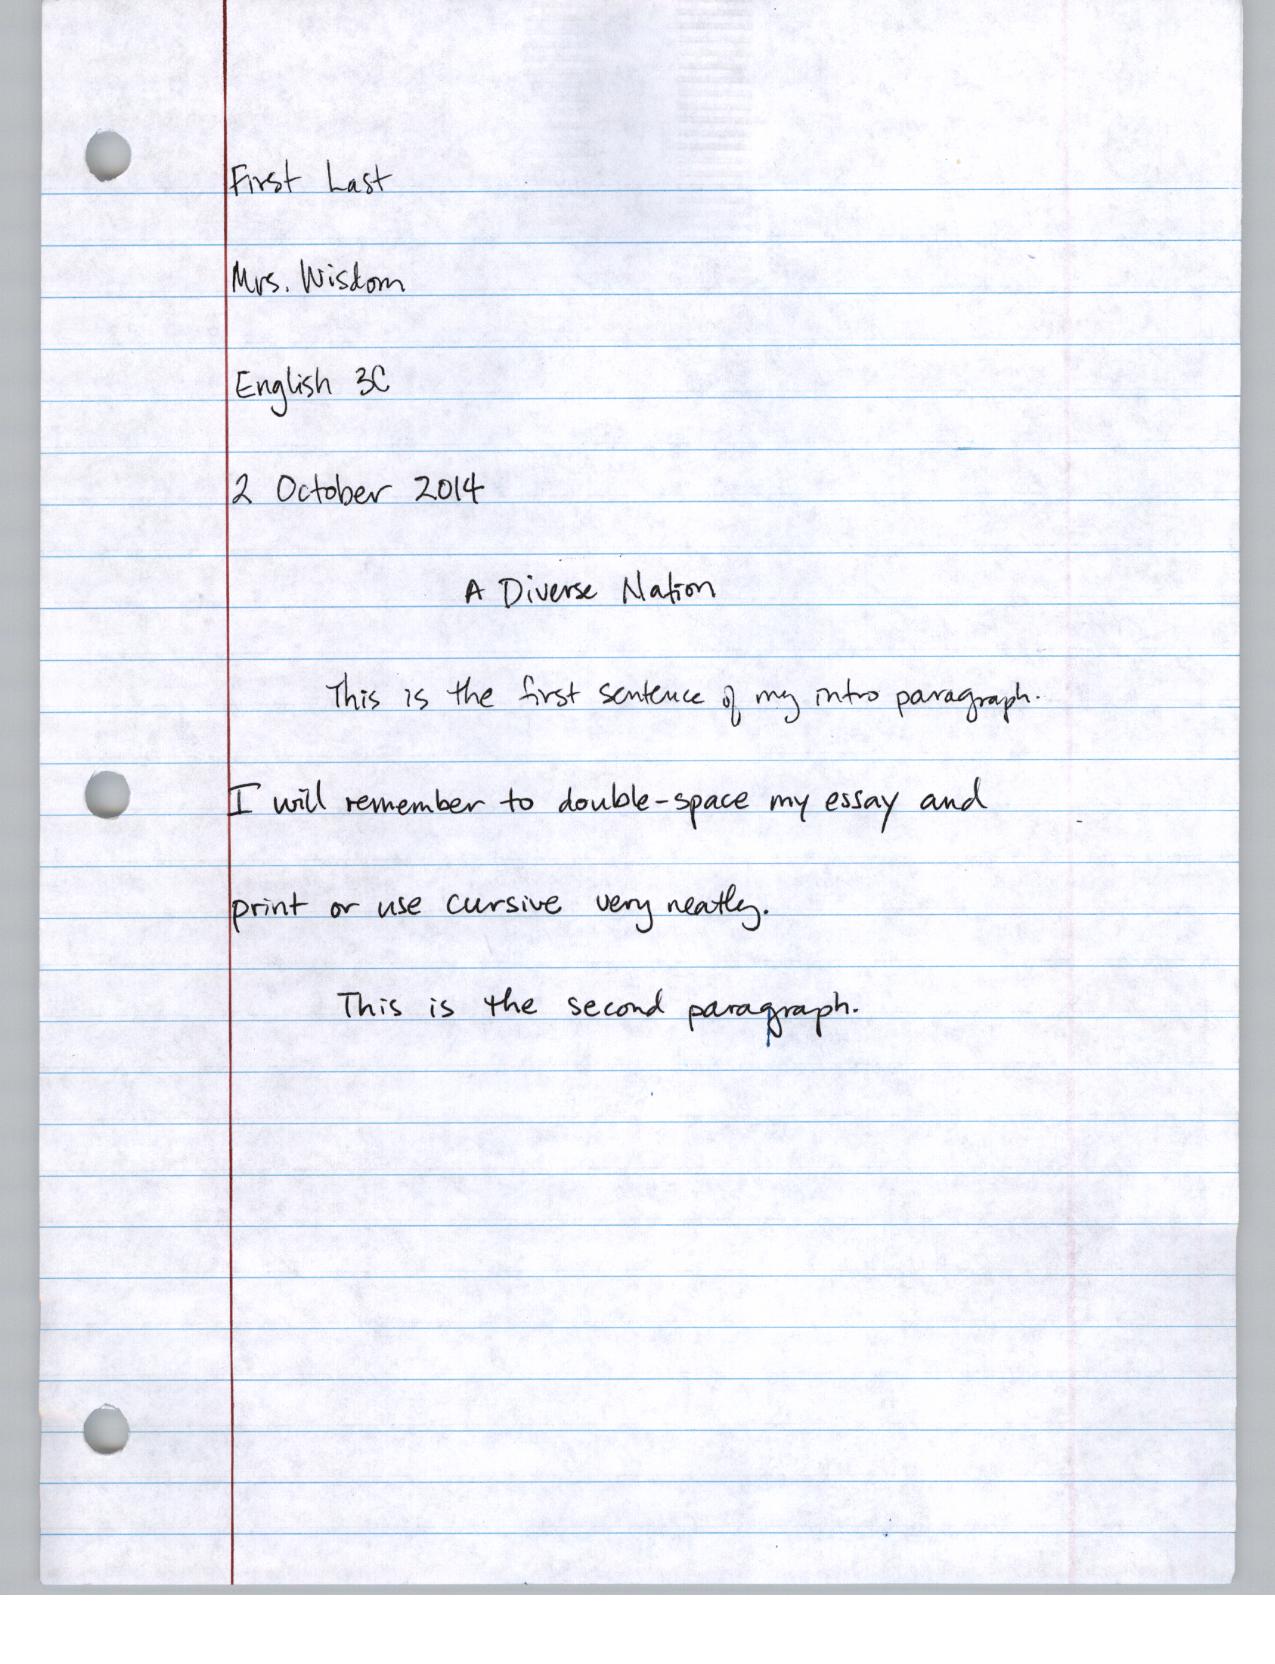 First Last
Mrs. Wisdom
English 3C
2 October 2014
A Diverse Nation
This is the first sentence of my intro paragraph.
I will remember to double-space my essay and
print or use cursive very neatly.
This is the second paragraph.